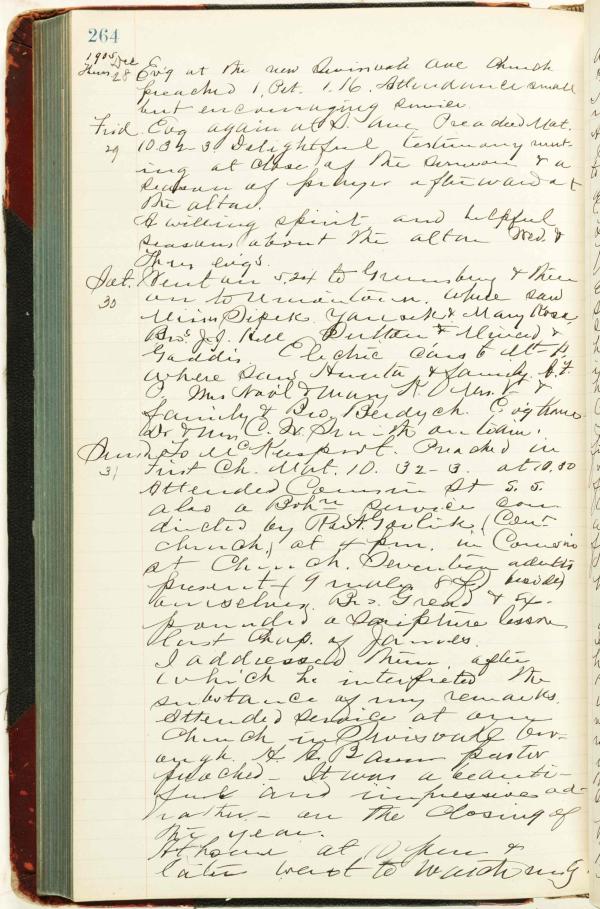 264
1905 Dec
Thurs 28 Ev'g at the new Swissvale Ave Church
preached 1, Pet. 1.16. Attendance small
but encouraging service.
Frid. Evg again at S. Ave Preached Mat.
29 10.32-3 Delightful testimony meet-
ing at close of the sermon & a
season of prayer afterward at
the altar.
A willing spirit and helpful
seasons about the altar Wed. &
Thurs ev'gs.
Sat. Went on 5.24 to Greensburg & then
30 on to Uniontown. where saw
Misses Dipek & Mary Rosa
Bros J.J. Hill
Gaddis. Electric cars to Mt. P.
where saw & family.
P. Mrs & Mary K. Mrs. &
family & Bro. Berdych. Evg home
Dr & Mrs. C. W. Smith on train.
Sund To McKeesport. Preached in
31 First Ch. Mat. 10. 32-3. at 10.30
Attended Cornwin St S.S.
also a Boh'n service con-
ducted by (Cent.
church,) at 4 p.m. in
St Church. Seventeen adults
present (9 males, 8 f) besides
ourselves. Bro. G. read & ex-
pounded a Scripture lesson
last Chap. of James.
I addressed them, after
which he interpreted the
substance of my remarks.
Attended service at our
Church in bor-
ough. pastor
preached - It was a beauti-
ful and impressive ad-
- on the closing of
the year.
At home at 10 p.m. &
later went to watch m'g